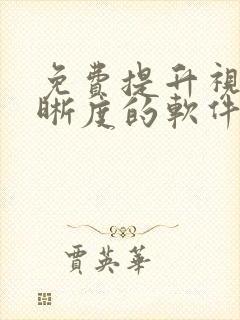 免費提升視
晰度的軟件
賈英華